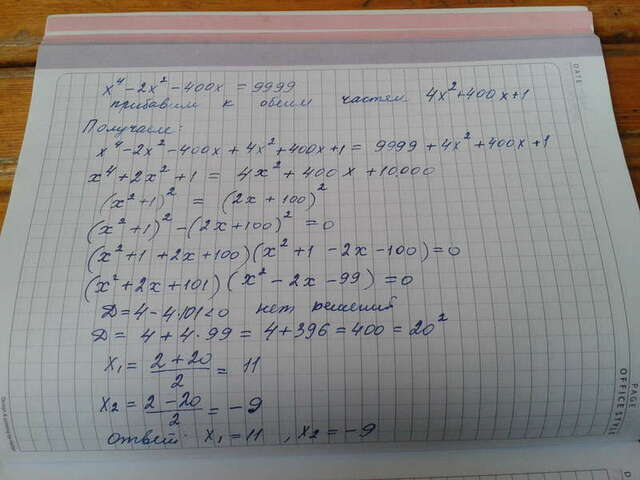 x⁴ - 2x² - 400x = 9999
прибавим к обеим частям 4x² + 400x + 1
Получаем:
x⁴ - 2x² - 400x + 4x² + 400x + 1 = 9999 + 4x² + 400x + 1
x⁴ + 2x² + 1 = 4x² + 400x + 10.000
(x² + 1)² = (2x + 100)²
(x² + 1)² - (2x + 100)² = 0
(x² + 1 + 2x + 100)(x² + 1 - 2x - 100) = 0
(x² + 2x + 101)(x² - 2x - 99) = 0
D = 4 - 4·101 < 0 нет решений
D = 4 + 4·99 = 4 + 396 = 400 = 20²
x₁ = (2 + 20)/2 = 11
x₂ = (2 - 20)/2 = -9
ответ: x₁ = 11, x₂ = -9
DATE
PAGE
OFFICE STYLE